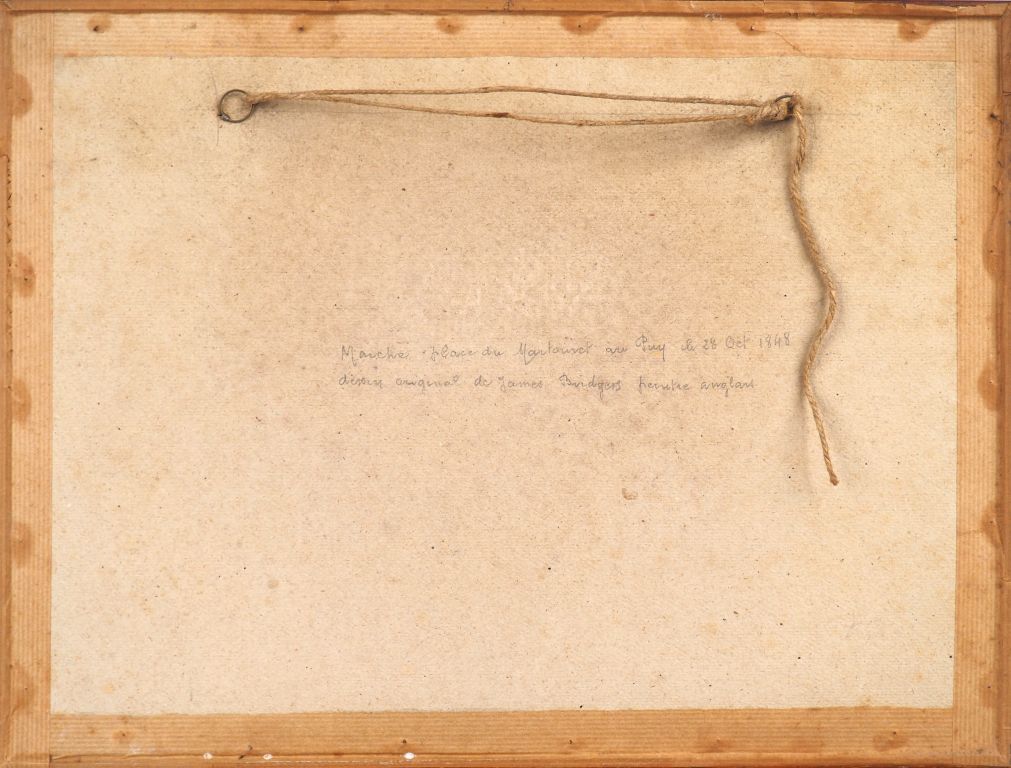 Marché place du Martouret au Puy le 28 Oct 1848
dessin original de James Bridgers peintre anglais